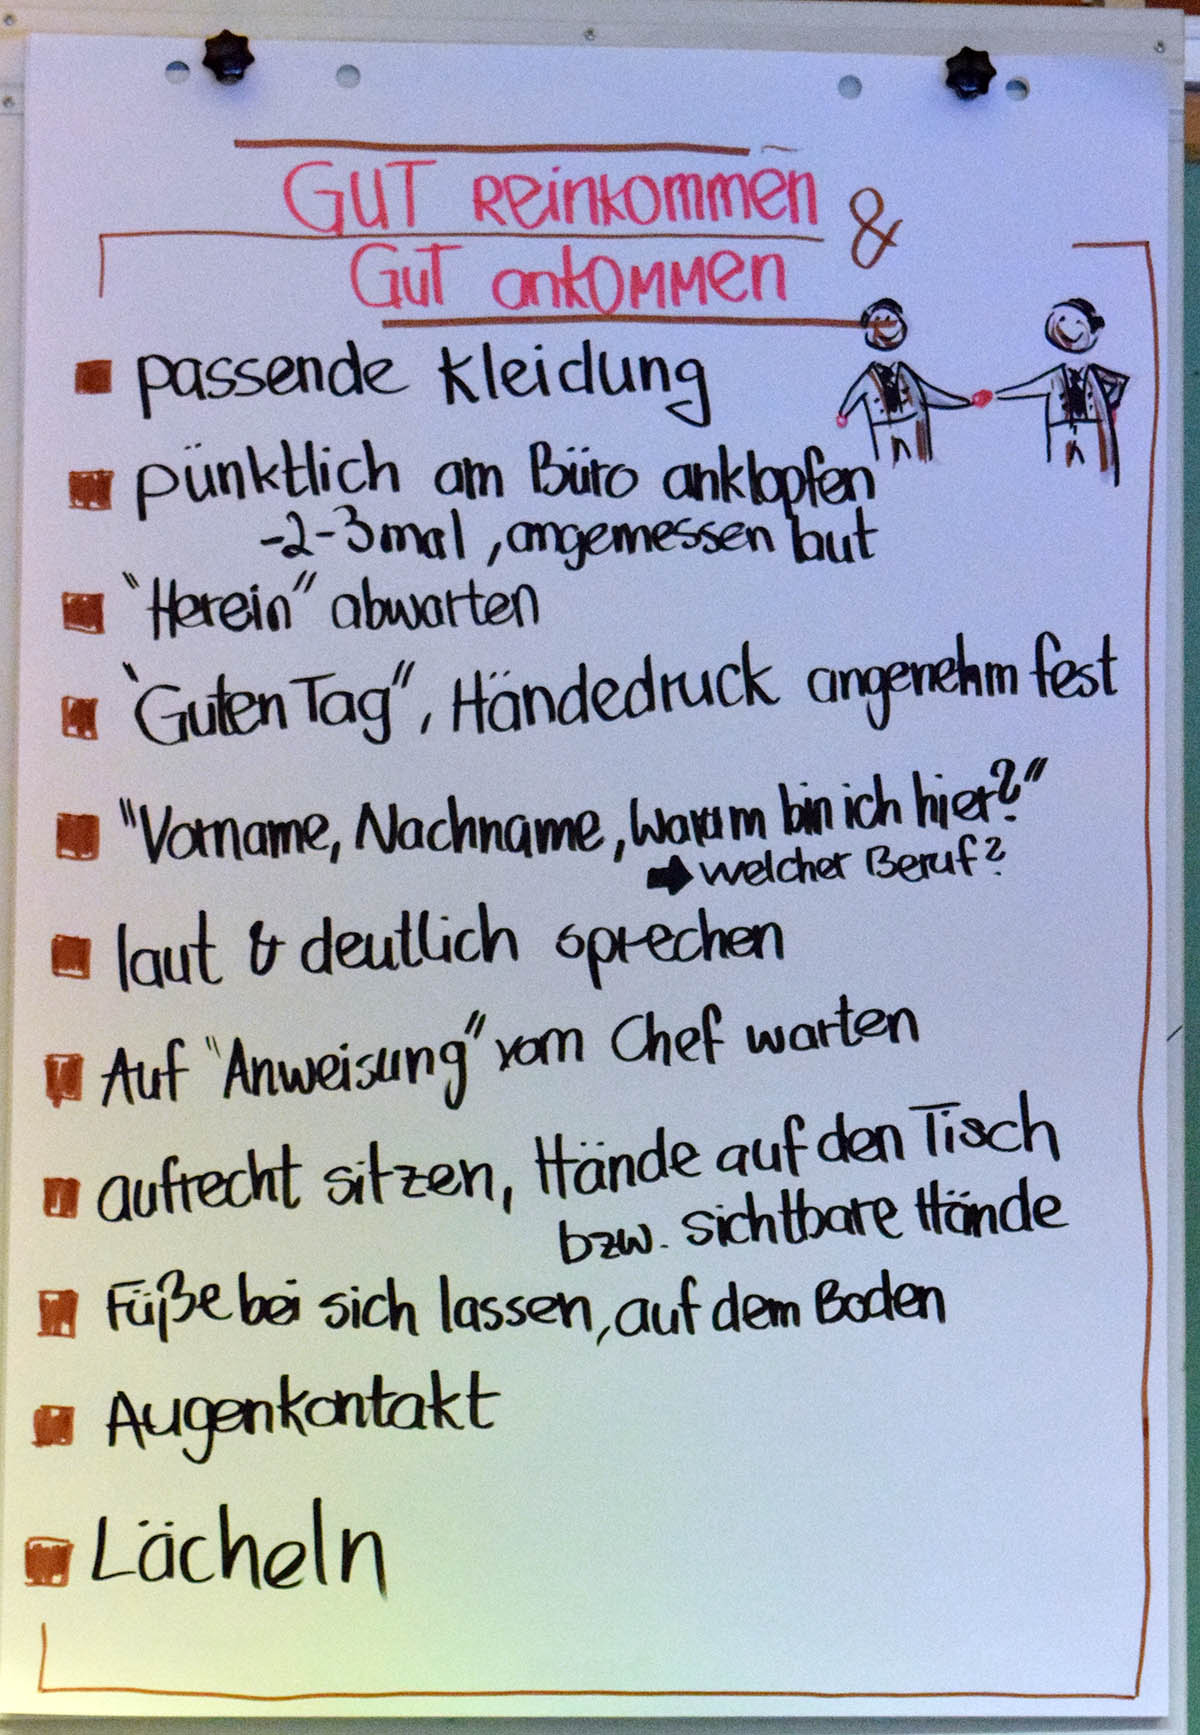 GUT Reinkommen &
Gut ankommen
passende Kleidung
pünktlich am Büro anklopfen
-2-3mal, angemessen laut
"Herein" abwarten
"Guten Tag", Händedruck angenehm fest
"Vorname, Nachname, Warum bin ich hier?"
➡ welcher Beruf?
laut & deutlich sprechen
Auf "Anweisung" vom Chef warten
aufrecht sitzen, Hände auf den Tisch
bzw. sichtbare Hände
Füße bei sich lassen, auf dem Boden
Augenkontakt
Lächeln